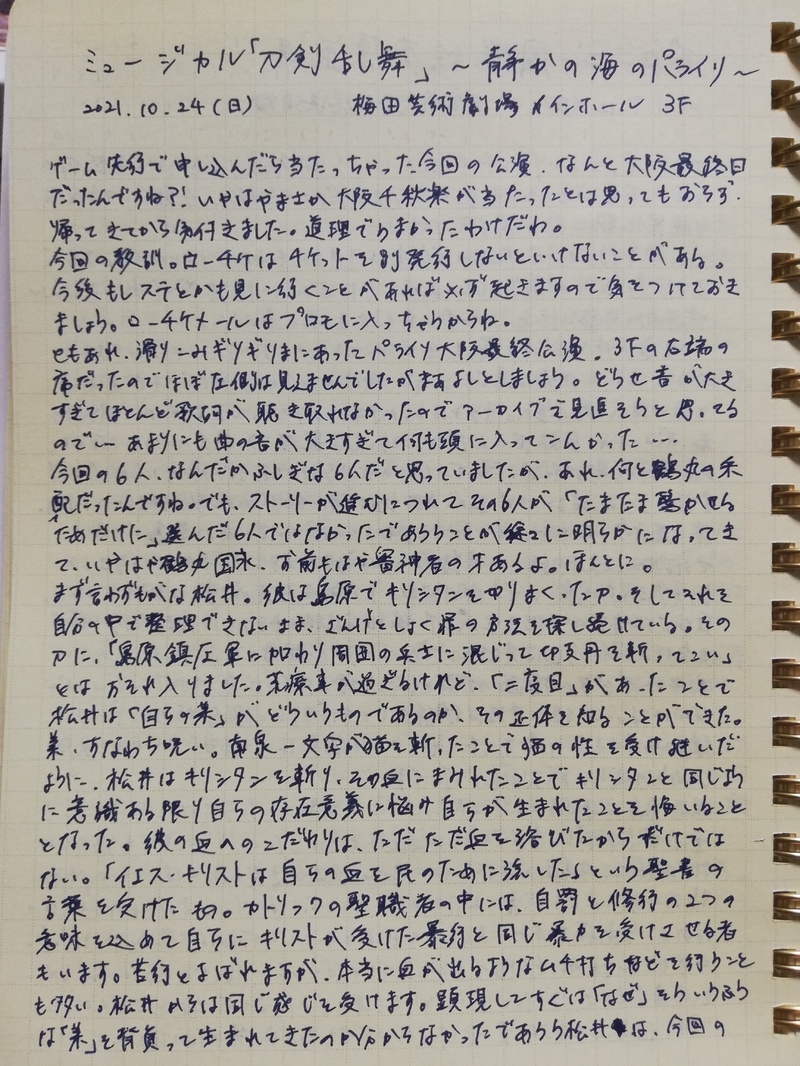 ミュージカル「刀剣乱舞」～静かの海のパライソ～
2021.10.24(日) 梅田芸術劇場メインホール 3F
ゲーム先行で申し込んだら当たっちゃった今回の公演、なんと大阪最終日
だったんですね?! いやはやまさか大阪千秋楽が当たったとは思ってもおらず、
帰ってきてから気付きました。道理でうまかったわけだわ。
今回の教訓。ローチケはチケットを別発行しないといけないことがある。
今後もしステとかも見に行くことがあれば必ず起きますので気をつけておき
ましょう。ローチケメールはプロモに入っちゃうからね。
ともあれ、滑りこみギリギリまにあったパライソ大阪最終公演。3Fの右端の
席だったのでほぼ左側は見えませんでしたがまあよしとしましょう。どうせ音が大き
すぎてほとんど歌詞が聴き取れなかったのでアーカイブで見直そうと思ってる
ので… あまりにも曲の音が大きすぎて何も頭に入ってこんかった…
今回の6人、なんだかふしぎな6人だと思っていましたが、あれ、何と鶴丸の采
配だったんですね。でも、ストーリーが進むにつれてその6人が「たまたま
ためだけに」選んだ6人ではなかったであろうことが徐々に明らかになってき
て、いやはや鶴丸国永、お前もはや審神者の才あるよ。ほんとに。
まず言わずもがな松井。彼は島原でキリシタンを切りまくった刀。そしてそれを
自分の中で整理できないまま、ざんげとしょく罪の方法を探し続けている。その
刀に、「島原鎮圧軍に加わり周囲の兵士に混じって切支丹を斬ってこい」
とはおそれ入りました。荒療草が過ぎるけれど、「二度目」があったことで
松井は「自らの業」がどういうものであるのか、その正体を知ることができた。
業、すなわち呪い。南泉一文字が猫を斬ったことで猫の性を受け継いだ
ように、松井はキリシタンを斬り、その血にまみれたことでキリシタンと同じよう
に意識ある限り自らの存在意義に悩み自らが生まれたことを悔いること
となった。彼の血へのこだわりは、ただただ血を浴びたからだけでは
ない。「イエス・キリストは自らの血を民のために流した」という聖書の
言葉を受けたもの。カトリックの聖職者の中には、自罰と修行の2つの
意味を込めて自らにキリストが受けた暴行と同じ暴力を受けさせる者
もいます。苦行とよばれますが、本当に血が出るようなムチ打ちなどを行うこと
も多い。松井からは同じ感じを受けます。顕現してすぐは「なぜ」そういうふう
な「業」を背負って生まれてきたのか分からなかったであろう松井は、今回の